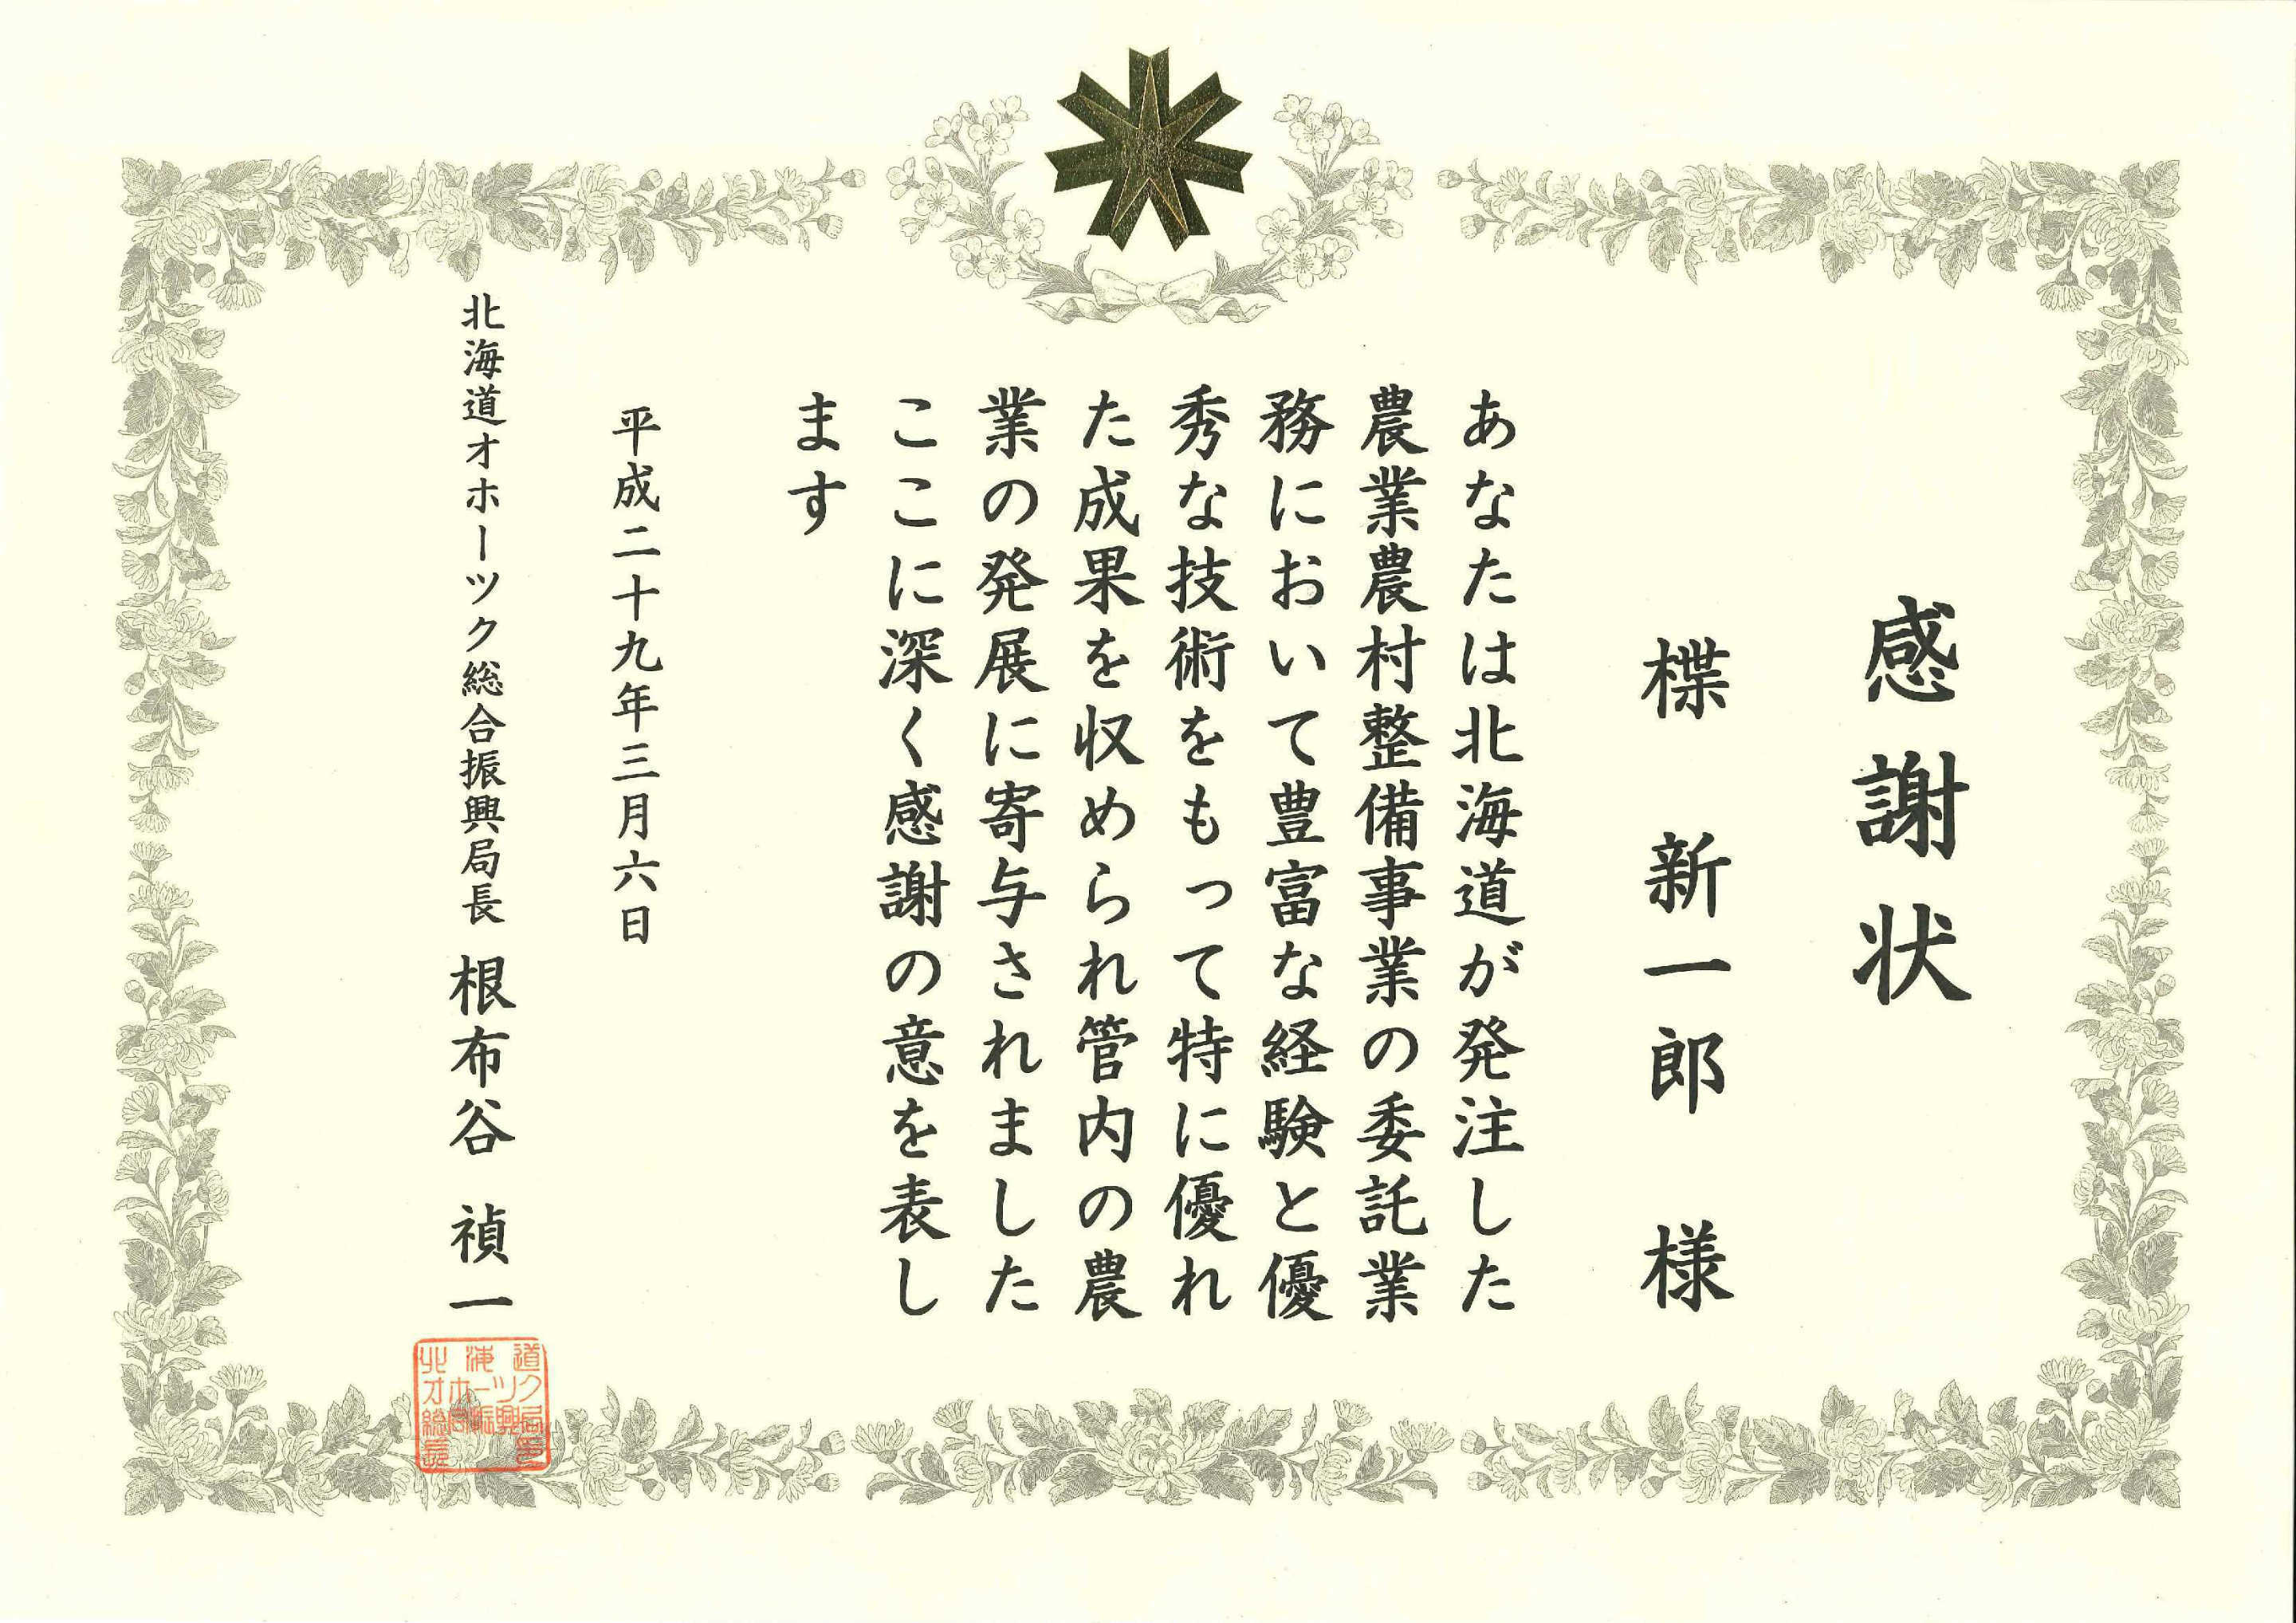 感謝状
楪 新一郎 様
あなたは北海道が発注した
農業農村整備事業の委託業
務において豊富な経験と優
秀な技術をもって特に優れ
た成果を収められ管内の農
業の発展に寄与されました
ここに深く感謝の意を表し
ます
平成二十九年三月六日
北海道オホーツク総合振興局長 根布谷 禎一
北海道
オホーツク
総合振興局
長印